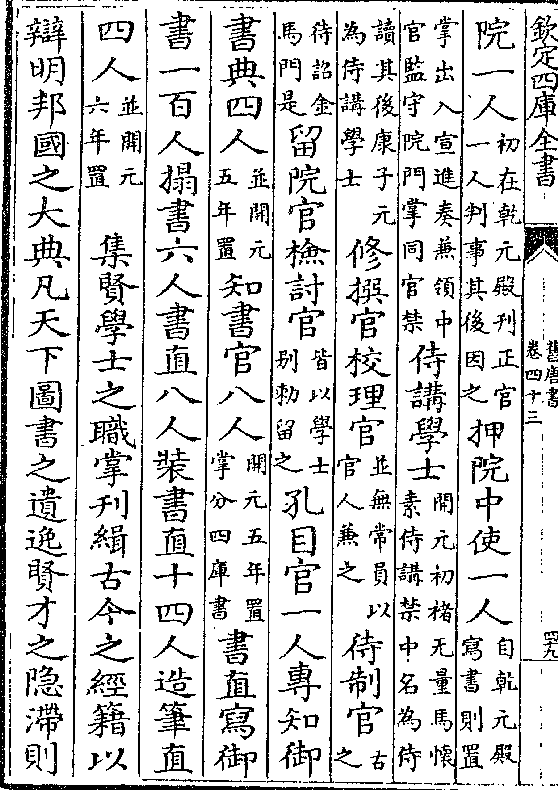 欽定四庫全書
舊唐書
卷四十三
四九
院一人初在乾元殿刋正官一人判事其後因之押院中使一人自乾元殿寫書則置
掌出入宣進奏兼領中官監守院門掌同官禁侍講學士開元初褚无量馬懷素侍講禁中名為侍
讀其後康子元為侍講學士修撰官校理官並無常員以官人兼之待制官古之
待詔金馬門是留院官檢討官皆以學士别勅留之孔目官一人專知御
書典四人並開元五年置知書官八人開元五年置掌分四庫書書直寫御
書一百人搨書六人書直八人裝書直十四人造筆直
四人並開元六年置　集賢學士之職掌刋緝古今之經籍以
辯明邦國之大典凡天下圖書之遺逸賢才之隐滯則